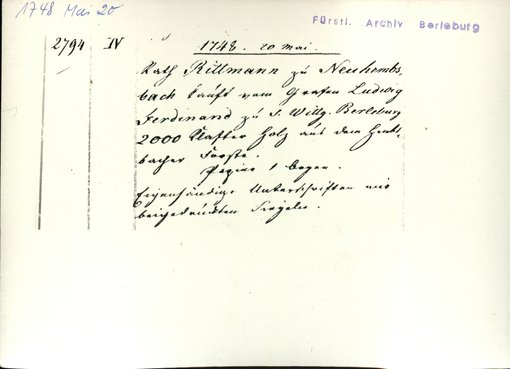 1748 Mai 20
Fürstl. Archiv Berleburg
2794 IV 1748. 20 Mai.
Rath Rillmann zu Neuhembs,
bach kauft vom Grafen Ludwig
Ferdinand zu S. Wittg. Berleburg
2000 Klafter Holz aus dem
bacher Forste.
Papier 1 Bogen.
Eigenhändige Unterschriften mit
beigedruckten Siegeln.